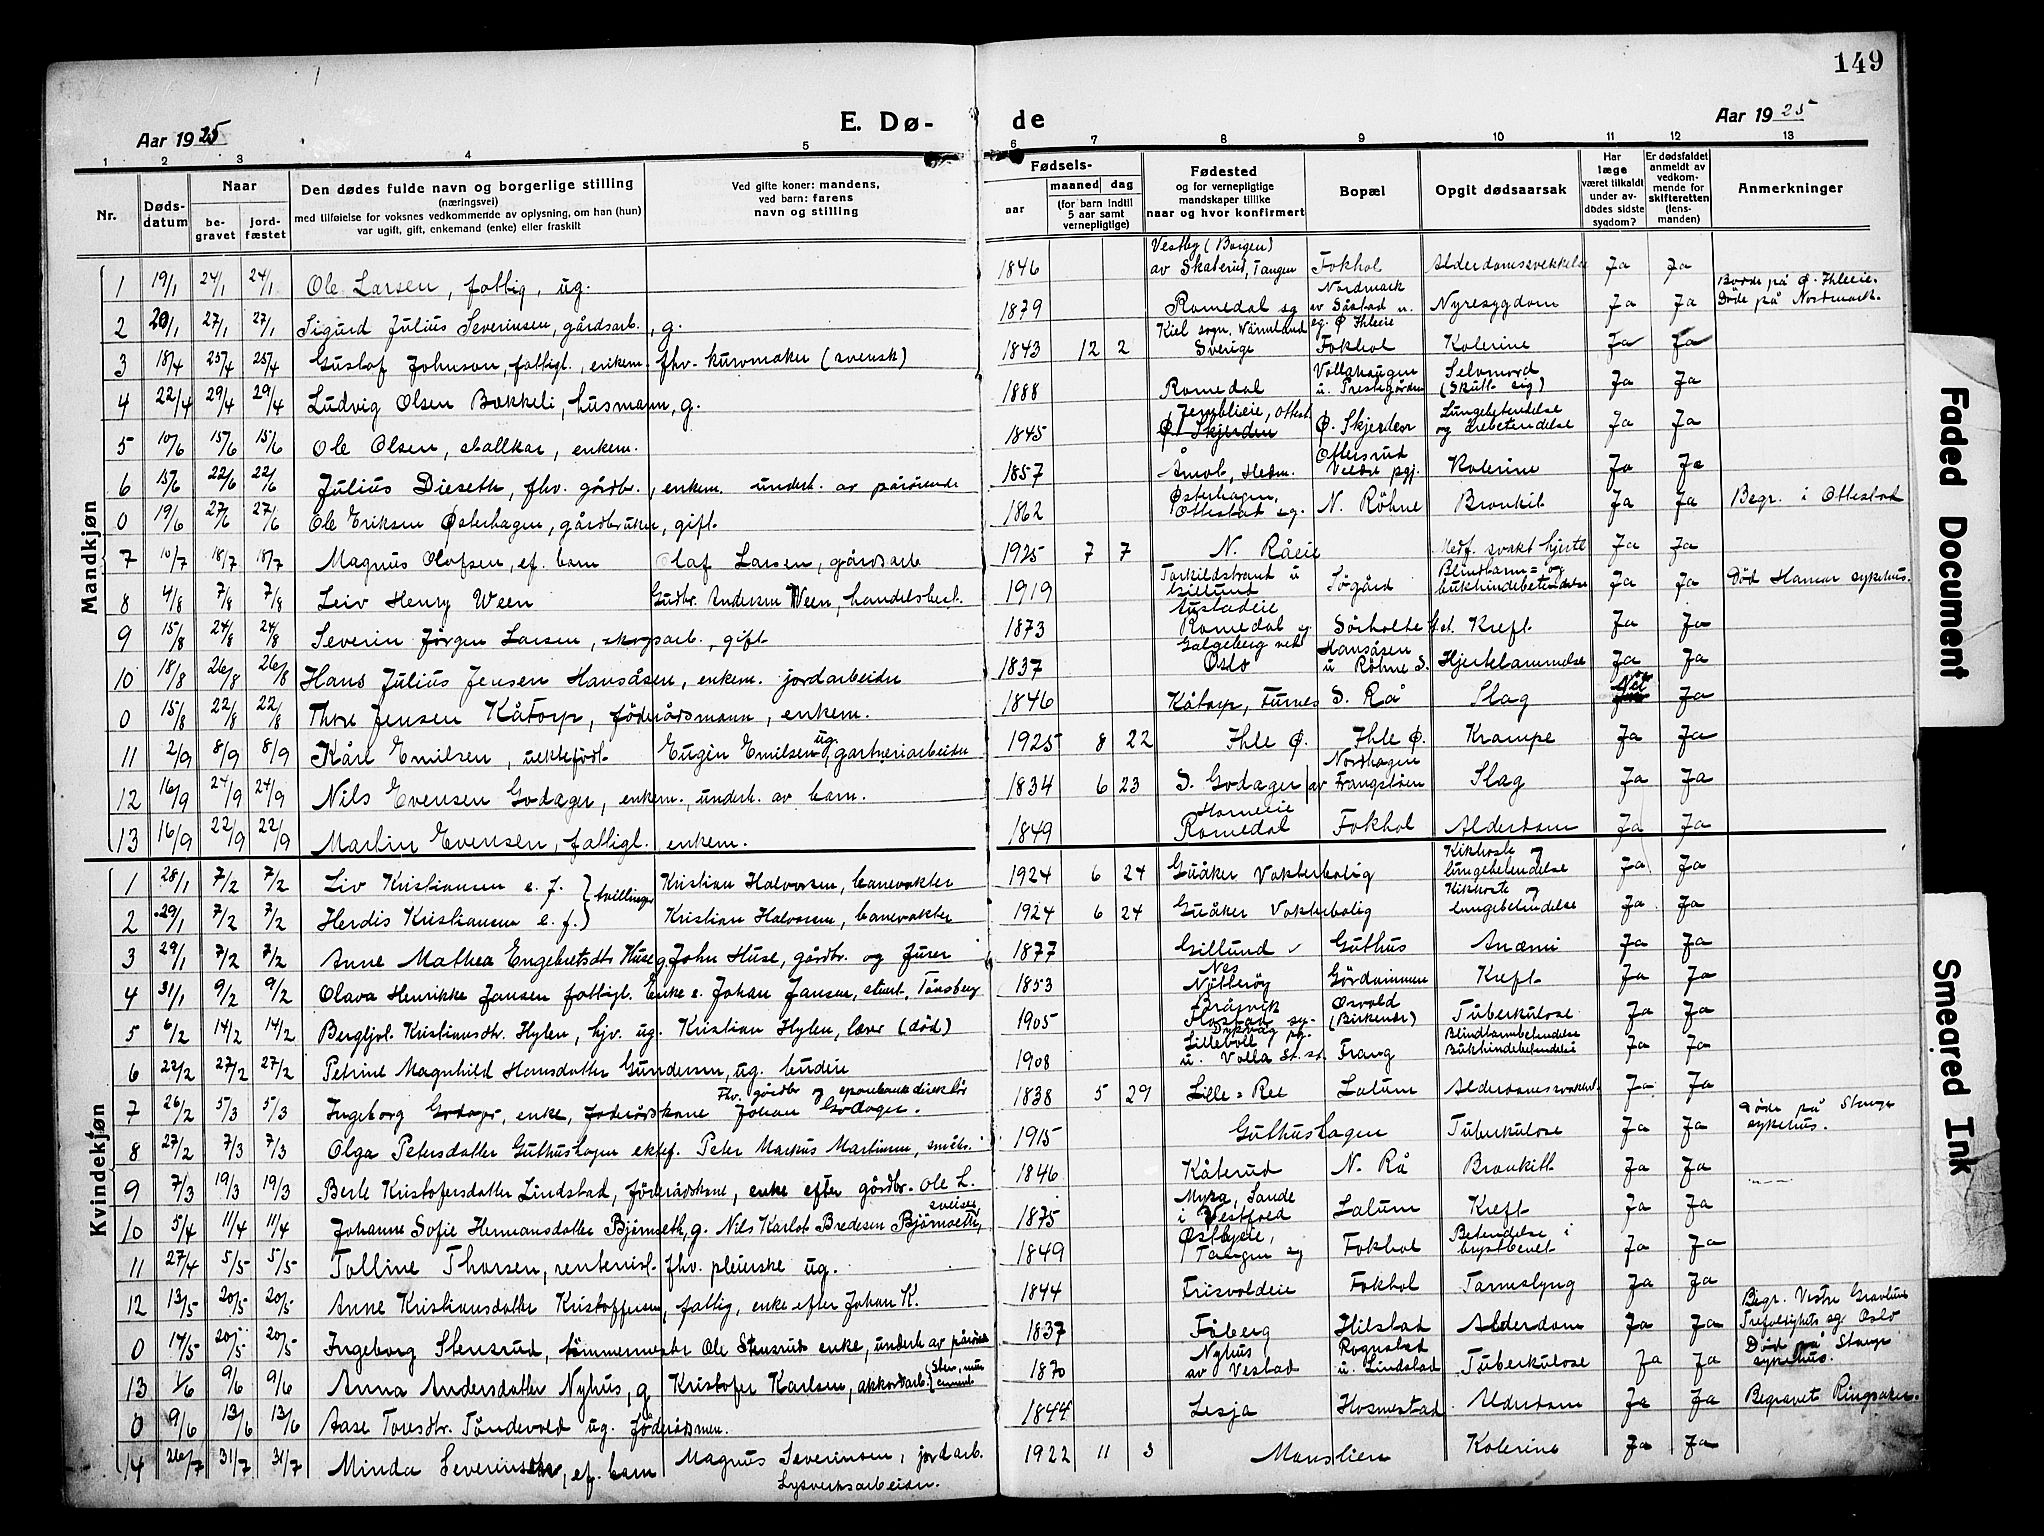 149
Aar 1925
E. Dø-
de
Aar 1925
1 2 3 4 5
6 7 8 9 10 11 12 13
Nr.
Døds-
datum
Naar
be-
gravet
jord-
fæstet
Den dødes fulde navn og borgerlige stilling
(næringsvei)
med tilføielse for voksnes vedkommende av oplysning, om han (hun)
var ugift, gift, enkemand (enke) eller fraskilt
Ved gifte koner: mandens,
ved barn: farens
navn og stilling
Fødsels-
aar
maaned
dag
(for barn indtil
5 aar samt
vernepligtige)
Fødested
og for vernepligtige
mandskaper tillike
naar og hvor konfirmert
Bopæl
Opgit dødsaarsak
Har
læge
været tilkaldt
under av-
dødes sidste
sygdom?
Er dødsfaldet
anmeldt av
vedkom-
mende for
skifteretten
(lens-
manden)
Anmerkninger
Mandkjøn
1 19/1 24/1 24/1 Ole Larsen, fattig, ug. 1846 Vestby (Borgen) av Skaterud, Tangen Fokhol Alderdomssvekkelse Ja Ja
2 20/1 27/1 27/1 Sigurd Julius Severinsen, gårdsarb., g. 1879 Romedal sg Nordmark av Såstad u. eg. Ø Ihleie Nyresygdom Ja Ja Bodde på Ø. Ihleeie. Døde på Nordmark.
3 18/4 25/4 25/4 Gustaf Johnson, fattigl., enkem. fhv. kurvmaker (svensk) 1843 12 2 Kiel sogn, Värmland Sverige Fokhol Kolerine Ja Ja
4 22/4 29/4 29/4 Ludvig Olsen Bakkeli, husmann, g. 1888 Romedal Vollshaugen u. Prestegården Selvmord (Skutt sig) Ja Ja
5 10/6 15/6 15/6 Ole Olsen, stallkar, enkem. 1845 Jemblieie, Ottest. Ø. Skjerden Ø. Skjerden Lungebetendelse og årebetendelse Ja Ja
6 15/6 22/6 22/6 Julius Dieseth, fhv. gårdbr., enkem. underh. av pårörende 1857 Åmot, Hedm. Ottersrud Veldre pgj. Kolerine Ja Ja
0 19/6 27/6 27/6 Ole Eriksen Østerhagen, gårdbruker, gift 1862 Østerhagen, Ottestad sg. N. Röhne Bronkit Ja Ja Begr. i Ottestad
7 10/7 18/7 18/7 Magnus Olafsen, ef. barn Olaf Larsen, gårdsarb 1925 7 7 N. Råeie Medf. svakt hjerte Ja Ja
8 4/8 7/8 7/8 Leiv Henry Ween Gudbr. Andersen Ween, handelsbest. 1919 Torkildstrand u Gillund Sögård Blindtarm= og bukhindebetendelse Ja Ja Död Hamar sykehus.
9 15/8 24/8 24/8 Severin Jörgen Larsen, skogsarb., gift 1873 Romedal sg Sörholte Kreft Ja Ja
10 18/8 26/8 26/8 Hans Julius Jensen Hansåsen, enkem. jordarbeider 1837 Galgeberg ved Oslo Hansåsen u Röhne S. Hjertelammelse Ja Ja
0 15/8 22/8 22/8 Thore Jensen Kåtorp, föderådsmann, enkem. 1846 Kåtorp, Furnes S. Rå Slag Nei Ja
11 2/9 8/9 8/9 Kåre Emilsen, uektefödt Eugin Emilsen ug. gartneriarbeider 1925 8 22 Ihle Ø. Ihle Ø. Krampe Ja Ja
12 16/9 24/9 24/9 Nils Evensen Godager, enkem. underh. av barn. 1834 6 23 S. Godager Nordhagen av Frangstöen Slag Ja Ja
13 16/9 22/9 22/9 Martin Evensen, fattigl. enkem. 1849 Horneeie Romedal Fokhol Alderdom Ja Ja
Kvindekjøn
1 28/1 7/2 7/2 Liv Kristiansen e. f. } tvillinger Kristian Halvorsen, banevokter 1924 6 24 Guåker Vokterbolig Kikhoste og lungebetendelse Ja Ja
2 29/1 7/2 7/2 Herdis Kristiansen e. f. } Kristian Halvorsen, banevokter 1924 6 24 Guåker Vokterbolig Kikhoste og lungebetendelse Ja Ja
3 29/1 7/2 7/2 Anne Mathea Engebretsdtr Huse g John Huse, gårdbr. og furer 1877 Gillund Guthus Anæmi Ja Ja
4 31/1 9/2 9/2 Olava Henrikke Jansen fattigl. Enke e. Johan Jansen, stuert, Tönsberg 1853 Nes Nötteröy Gördammen Kreft Ja Ja
5 6/2 14/2 14/2 Bergljot Kristiansdtr. Hylen, hjv. ug. Kristian Hylen, lærer (död) 1905 Bråsvik Flostad sg. Dypvåg pg. Osvold (Birkenær) Tuberkulose Ja Ja
6 22/2 27/2 27/2 Petrine Magnhild Hansdatter Gundersen, ug. budeie 1908 Lilleboll u. Volla St. sg. Frang Blindtarmbetendelse Bukhindebetendelse Ja Ja
7 26/2 5/3 5/3 Ingeborg Godager, enke, föderådskone Fhv. gårdbr og sparebankdirektör Johan Godager. 1838 5 29 Lille=Ree Lalum Alderdomssvakhet Ja Ja
8 27/2 7/3 7/3 Olga Petersdatter Guthushagen ektef. Peter Markus Martinsen, småbr. 1915 Guthushagen Tuberkulose Ja Ja Döde på Stange sykehus.
9 7/3 19/3 19/3 Berte Kristofersdatter Lindstad, föderådskone, enke efter gårdbr. Ole L. 1846 Kåterud N. Rå Bronkitt Ja Ja —"—
10 5/4 11/4 11/4 Johanne Sofie Hermansdatter Bjørnseth, g. Nils Karlot Bredesen Bjørnseth, sveiser 1875 Myra, Sande i Vestfold Lalum Kreft Ja Ja
11 27/4 5/5 5/5 Tolline Thorsen, rentenist. fhv. pleierske ug. 1849 Østbyeie, Tangen sg Fokhol Betendelse i brystbenet Ja Ja
12 13/5 20/5 20/5 Anne Kristiansdatter Kristoffersen, fattig, enke efter Johan K. 1844 Frisvoldeie Fokhol Tarmslyng Ja Ja
0 14/5 20/5 20/5 Ingeborg Stensrud, tömmermester Ole Stensrud enke, underh av pårör. 1837 Fåberg Hilstad Alderdom Ja Ja Begr. Vestre Gravlund Trefoldighets sg Oslo
13 1/6 9/6 9/6 Anna Andersdatter Nyhus, g Kristofer Karlsen, akkordarb. 1870 Nyhus av Vestad Rognstad u. Lindstad Tuberkulose Ja Ja Död på Stange sykehus.
0 9/6 13/6 13/6 Aase Toresdtr. Töndevold ug. föderådsmen. 1844 Lesja Hosmestad Alderdom Ja Ja Begravet Ringsaker.
14 26/7 31/7 31/7 Minda Severinsen, ef. barn Magnus Severinsen, jordarb. Lysverksarbeider. 1922 11 3 Monslien Kolerine Ja Ja
Faded Document
Smeared Ink